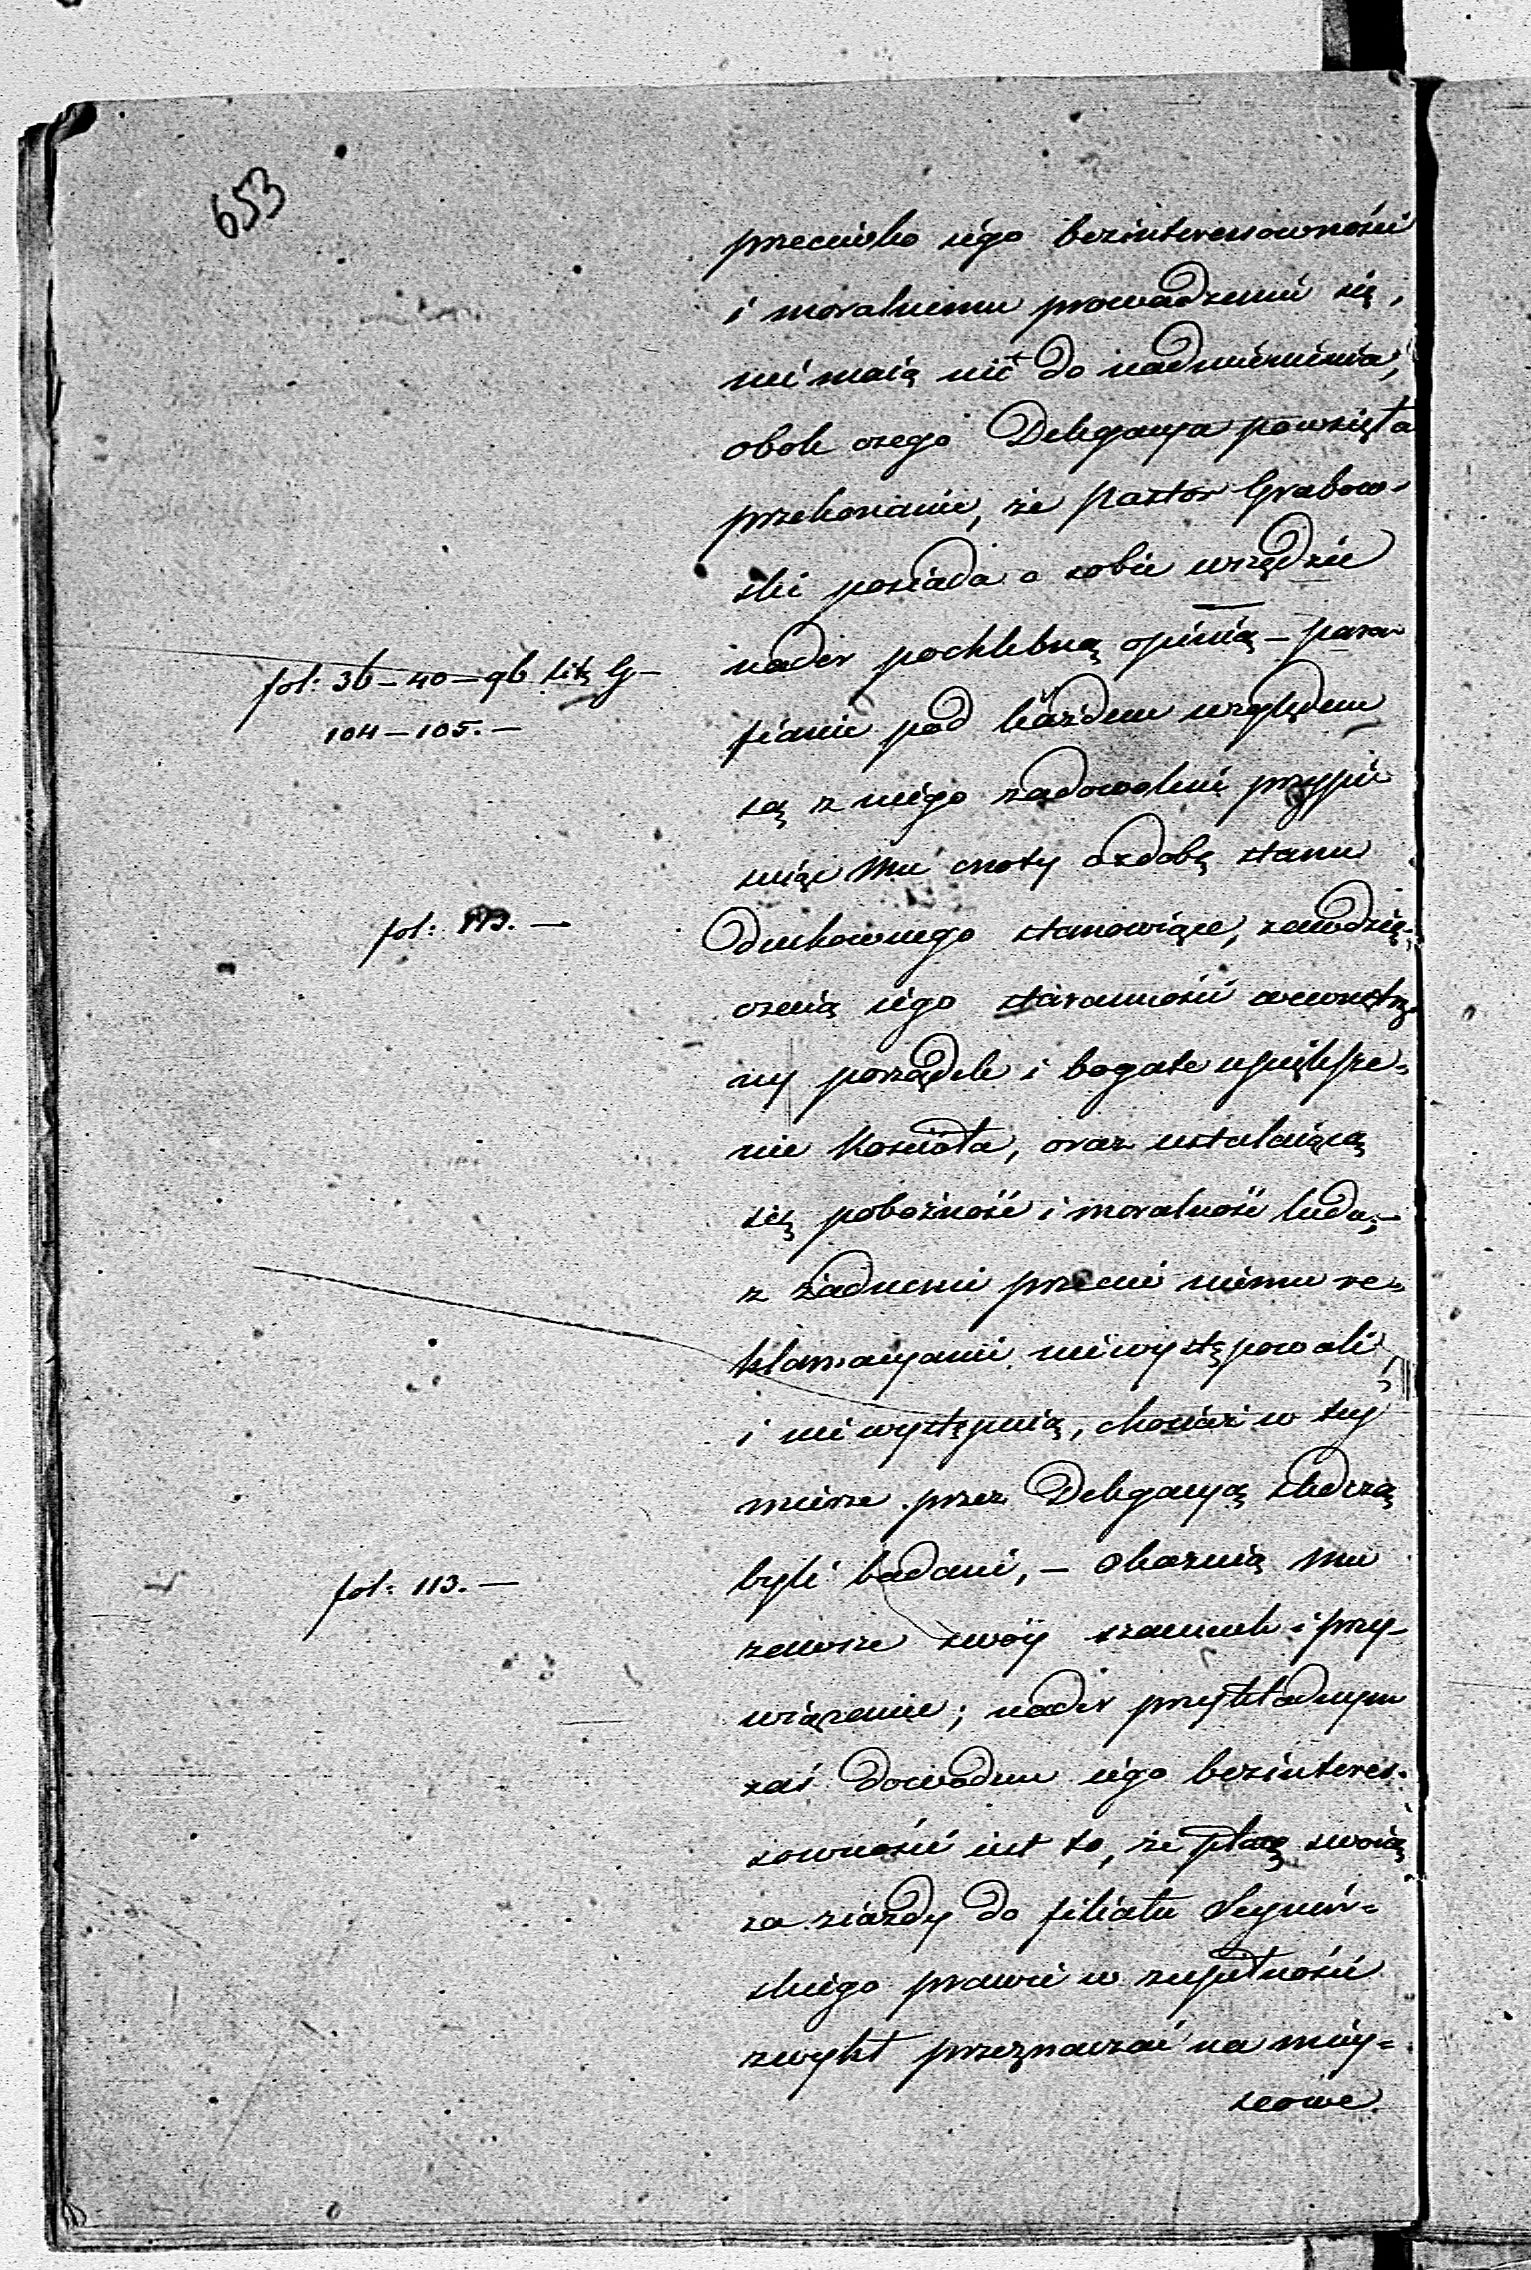 653
przeciwko iego bezinteressowności
i moralnemu prowadzeniu się,
nie maią nic do nadmienienia,
obok czego Delegacya powzięła
przekonanie, że Pastor Grabow-
ski posiada o sobie wszędzie
fol: 36-40-96 lit: G- nader pochlebną opinią - para
104-105.- fianie pod każdem względem
są z niego zadowolnie przypi
suiąc mu cnoty ozdobę stanu
fol: 113.- duchownego stanowiące, zawdzię-
czaią iego staranności wewnętrz-
ny porządek i bogate upiększe-
nie Kościoła, oraz ustalaiącą
się pobożność i moralność ludu;-
z żadnemi przeciw niemu re-
klamacyami niewystępowali,
i niewystępuią, chociaż w tey
mierze przez Delegacyą śledczą
fol: 113.- byli badani,- okazuią mu
zawsze swóy szacunek i przy-
wiązanie; nader przykładnym
zaś dowodem iego bezinteres-
sowności iest to, że płacę swoią
za ziazdy do filiału Seyneń-
skiego prawie w zupełności
zwykł przeznaczać na miey-
scowe